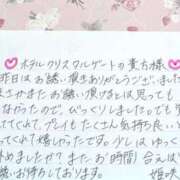 ホテルクリスタルゲートの貴方様
昨日はお誘い頂きありがとうございました
まさかまたお誘い頂けるとは思っても
なかったので、びっくりしました。でも
てくれて、プレイもたくさん気持ち良い
ってくれて嬉しかったです。少しはゆっく
めましたか？またお時間合えば
お待ちしております。
姫咲